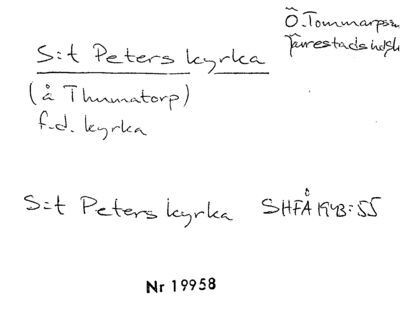 Ö. Tommarps sn
Järrestads hd
S:t Peters kyrka
(å Thumatorp)
f.d. kyrka
S:t Peters kyrka SHFÅ 1943:55
Nr 19958